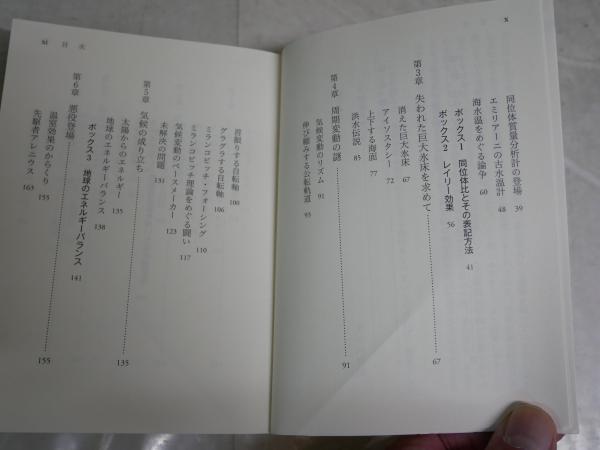 x
同位体質量分析計の登場 39
エミリアーニの古水温計 48
海水温をめぐる論争 60
ボックス1 同位体比とその表記方法 41
ボックス2 レイリー効果 56
第3章 失われた巨大氷床を求めて 67
消えた巨大氷床 67
アイソスタシー 72
上下する海面 77
洪水伝説 85
第4章 周期変動の謎 91
気候変動のリズム 91
伸び縮みする公転軌道 95
xi 目次
首振りする自転軸 100
グラグラする自転軸 106
ミランコビッチ・フォーシング 110
ミランコビッチ理論をめぐる闘い 117
気候変動のペースメーカー 123
未解決の問題 131
第5章 気候の成り立ち 135
太陽からのエネルギー 135
地球のエネルギーバランス 138
ボックス3 地球のエネルギーバランス 141
第6章 悪役登場 155
温室効果のからくり 155
先駆者アレニウス 163